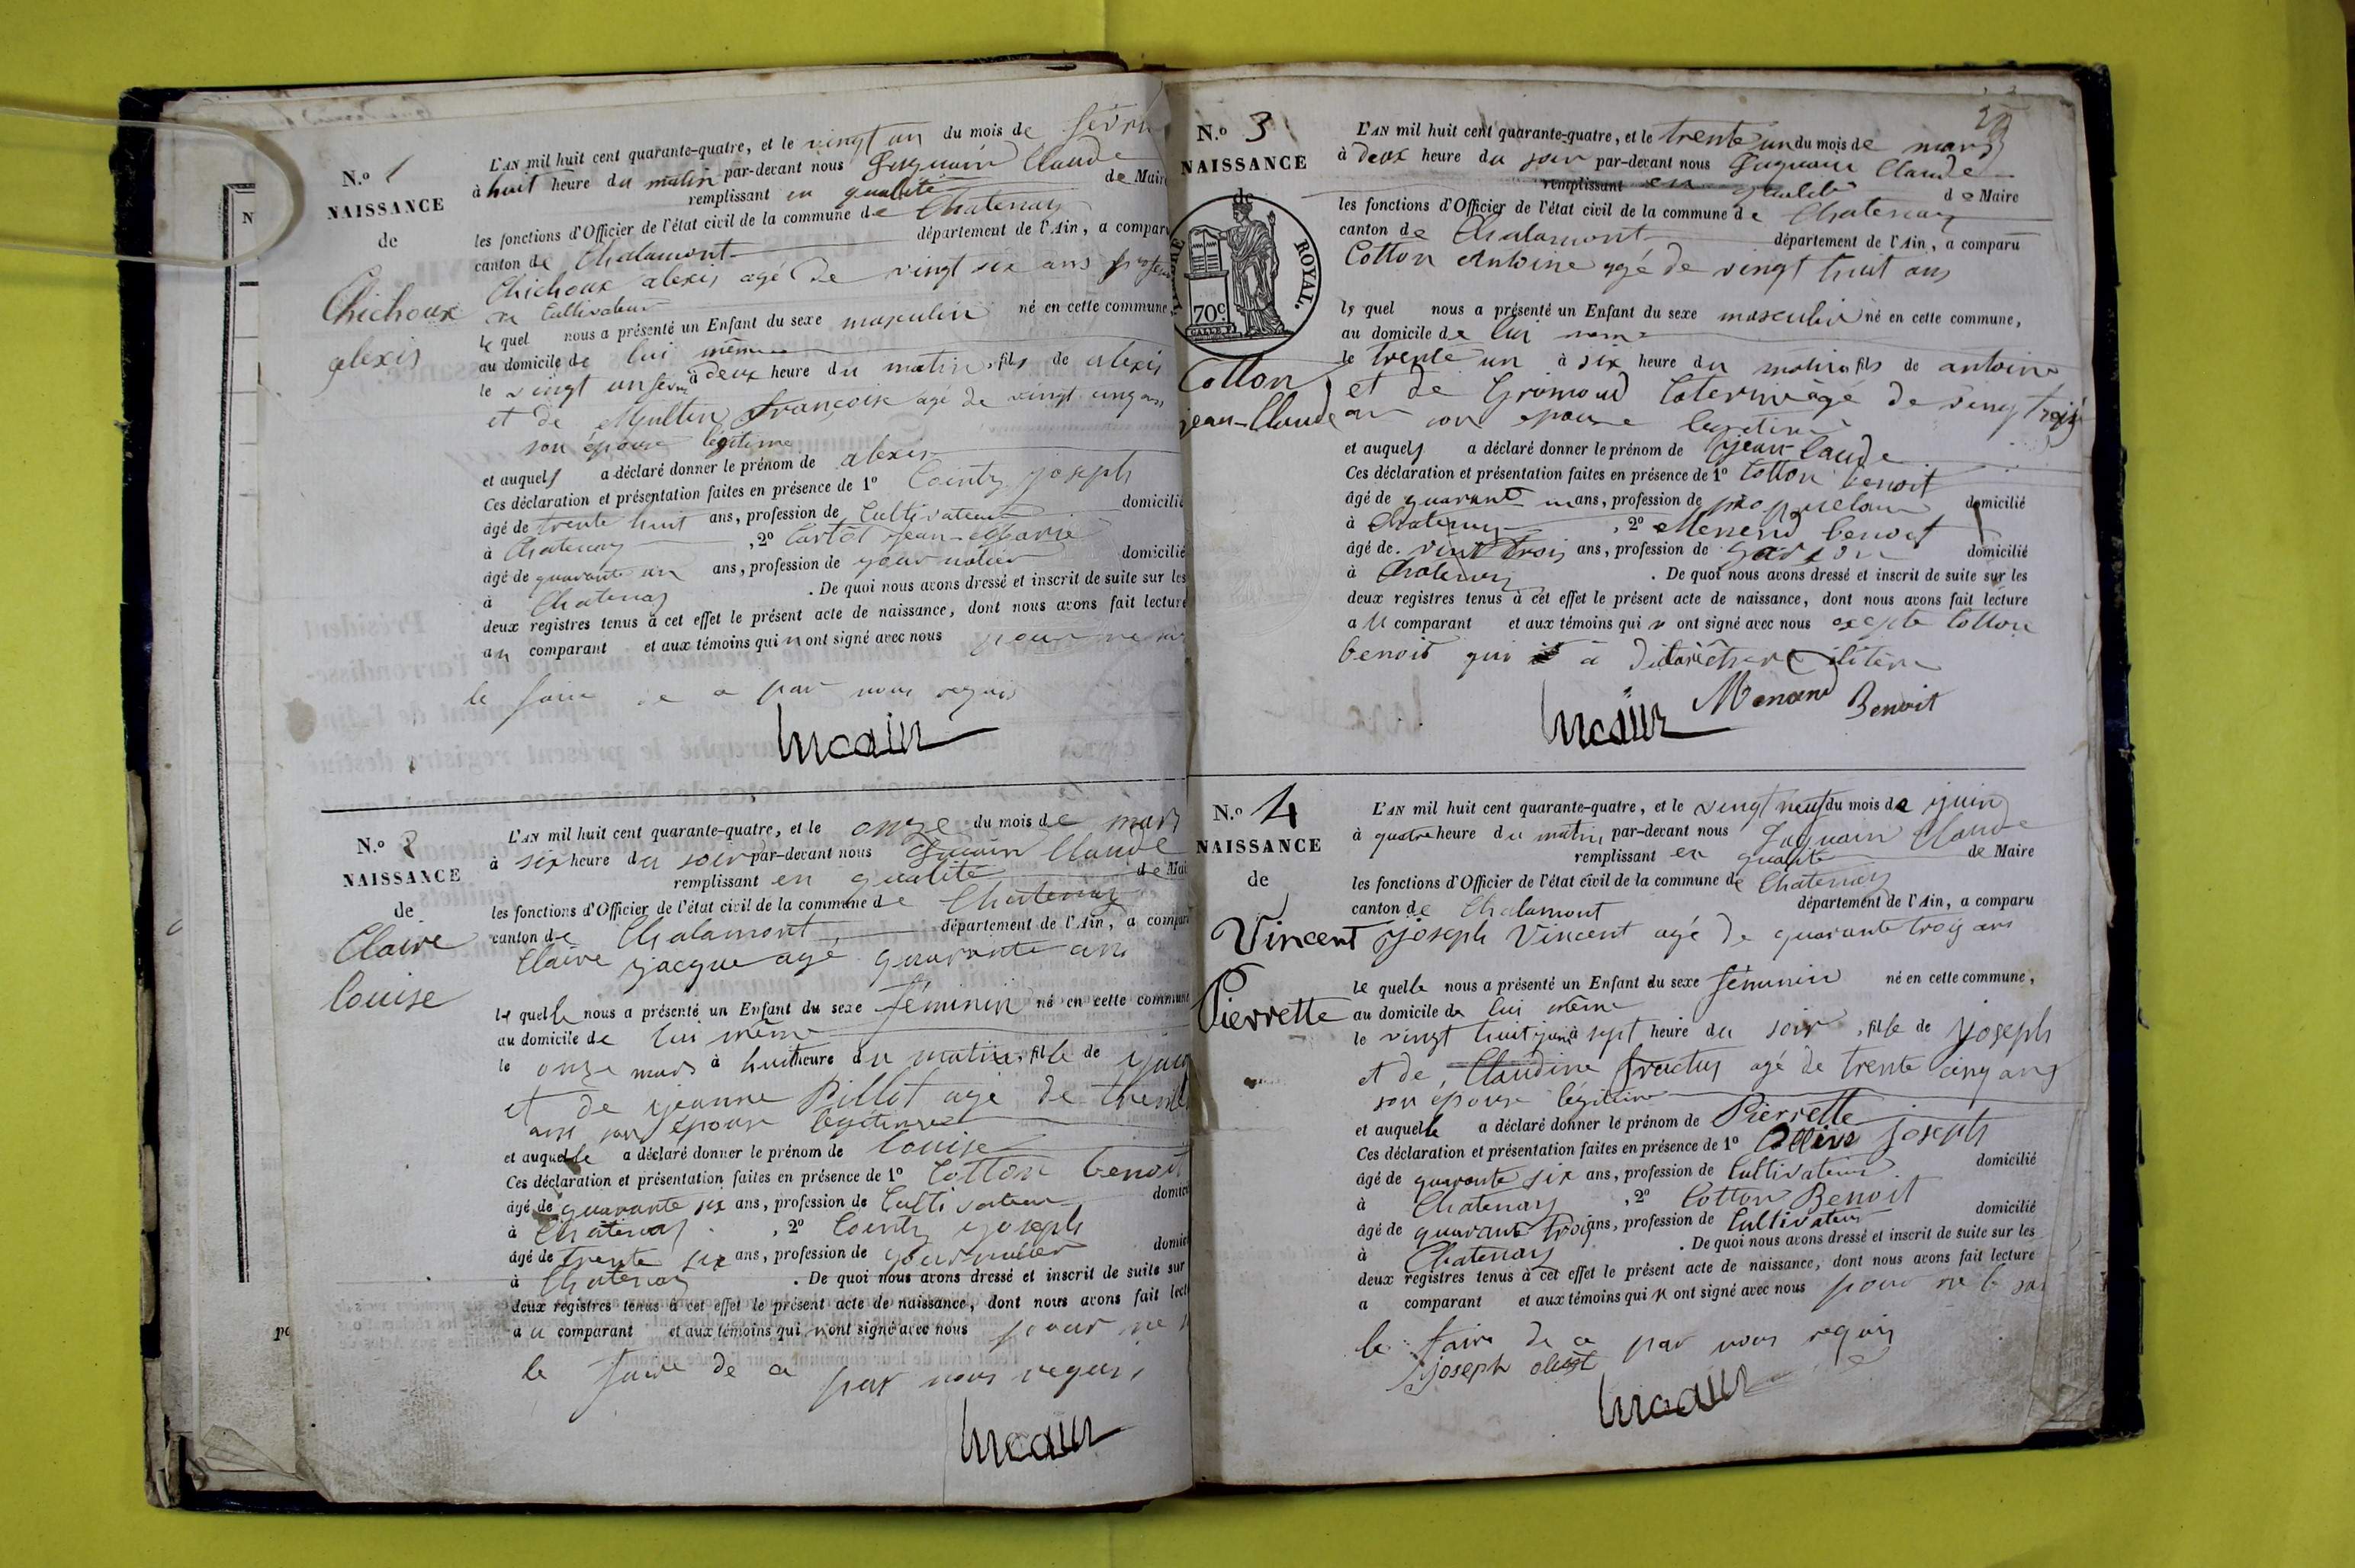 N.º 1
NAISSANCE
de
Chichoux
alexis
L'AN mil huit cent quarante-quatre, et le vingt un du mois de
à huit heure du matin par-devant nous Claude
remplissant en qualité de Maire
les fonctions d'Officier de l'état civil de la commune de Chatenay
canton de Chalamont département de l'Ain, a comparu
Chichoux alexis agé de vingt six ans
de Cultivateur
le quel nous a présenté un Enfant du sexe masculin né en cette commune
au domicile de lui même
le vingt un à deux heure du matin, fils de alexis
et de françoise agé de vingt cinq ans
son épouse légitime
et auquel a déclaré donner le prénom de alexis
Ces déclaration et présentation faites en présence de 1º Cointy joseph
âgé de trente huit ans, profession de Cultivateur domicilié
à Chatenay , 2º jean-Marie
âgé de quarante un ans, profession de journalier domicilié
à Chatenay . De quoi nous avons dressé et inscrit de suite sur les
deux registres tenus à cet effet le présent acte de naissance, dont nous avons fait lecture
au comparant et aux témoins qui n ont signé avec nous pour ne
le faire de a par nous requis
N.º 2
NAISSANCE
de
Claire
Louise
L'AN mil huit cent quarante-quatre, et le onze du mois de mars
à six heure du soir par-devant nous Claude
remplissant en qualité de Mai
les fonctions d'Officier de l'état civil de la commune de Chatenay
canton de Chalamont département de l'Ain, a compar
Claire jacque agé quarante ans
le quelle nous a présenté un Enfant du sexe féminin né en cette commune
au domicile de lui même
le onze mars à huit heure du matin, fille de
et de jeanne Pillot agé de
ans son épouse légitime
et auquelle a déclaré donner le prénom de Louise
Ces déclaration et présentation faites en présence de 1º Cotton benoit
âgé de quarante six ans, profession de Cultivateur
à Chatenay , 2º Cointy joseph
âgé de trente six ans, profession de journalier
à Chatenay . De quoi nous avons dressé et inscrit de suite sur
deux registres tenus à cet effet le présent acte de naissance, dont nous avons fait lect
au comparant et aux témoins qui n ont signé avec nous pour ne
le faire de a par nous requis
N.º 3
NAISSANCE
de
ROYAL.
70c
Cotton
jean-Claude
L'AN mil huit cent quarante-quatre, et le trente un du mois de mars
à deux heure du soir par-devant nous Claude
remplissant en qualité de Maire
les fonctions d'Officier de l'état civil de la commune de Chatenay
canton de Chalamont département de l'Ain, a comparu
Cotton Antoine agé de vingt huit ans
le quel nous a présenté un Enfant du sexe masculin né en cette commune,
au domicile de lui
le trente un à six heure du matin fils de antoine
et de agé de vingt trois
an son epouse
et auquel a déclaré donner le prénom de jean-Claude
Ces déclaration et présentation faites en présence de 1º Cotton benoit
âgé de quarante ans, profession de domicilié
à Chatenay , 2º benoit
âgé de vint trois ans, profession de domicilié
à Chatenay . De quoi nous avons dressé et inscrit de suite sur les
deux registres tenus à cet effet le présent acte de naissance, dont nous avons fait lecture
au comparant et aux témoins qui ont signé avec nous Cotton
benoit qui a
Menand Benoit
N.º 4
NAISSANCE
de
Vincent
Pierrette
L'AN mil huit cent quarante-quatre, et le vingt neuf du mois de juin
à quatre heure du matin, par-devant nous Claude
remplissant en qualité de Maire
les fonctions d'Officier de l'état civil de la commune de Chatenay
canton de Chalamont département de l'Ain, a comparu
joseph Vincent agé de quarante trois ans
le quelle nous a présenté un Enfant du sexe féminin né en cette commune,
au domicile de lui même
le vingt huit juin à sept heure du soir, fille de joseph
et de, Claudine agé de trente cinq ans
son épouse légitime
et auquelle a déclaré donner le prénom de Pierrette
Ces déclaration et présentation faites en présence de 1º joseph
âgé de quarante six ans, profession de Cultivateur domicilié
à Chatenay , 2º Cotton Benoit
âgé de quarante trois ans, profession de Cultivateur domicilié
à Chatenay . De quoi nous avons dressé et inscrit de suite sur les
deux registres tenus à cet effet le présent acte de naissance, dont nous avons fait lecture
a comparant et aux témoins qui n ont signé avec nous pour ne le
le faire de a par nous requis
joseph